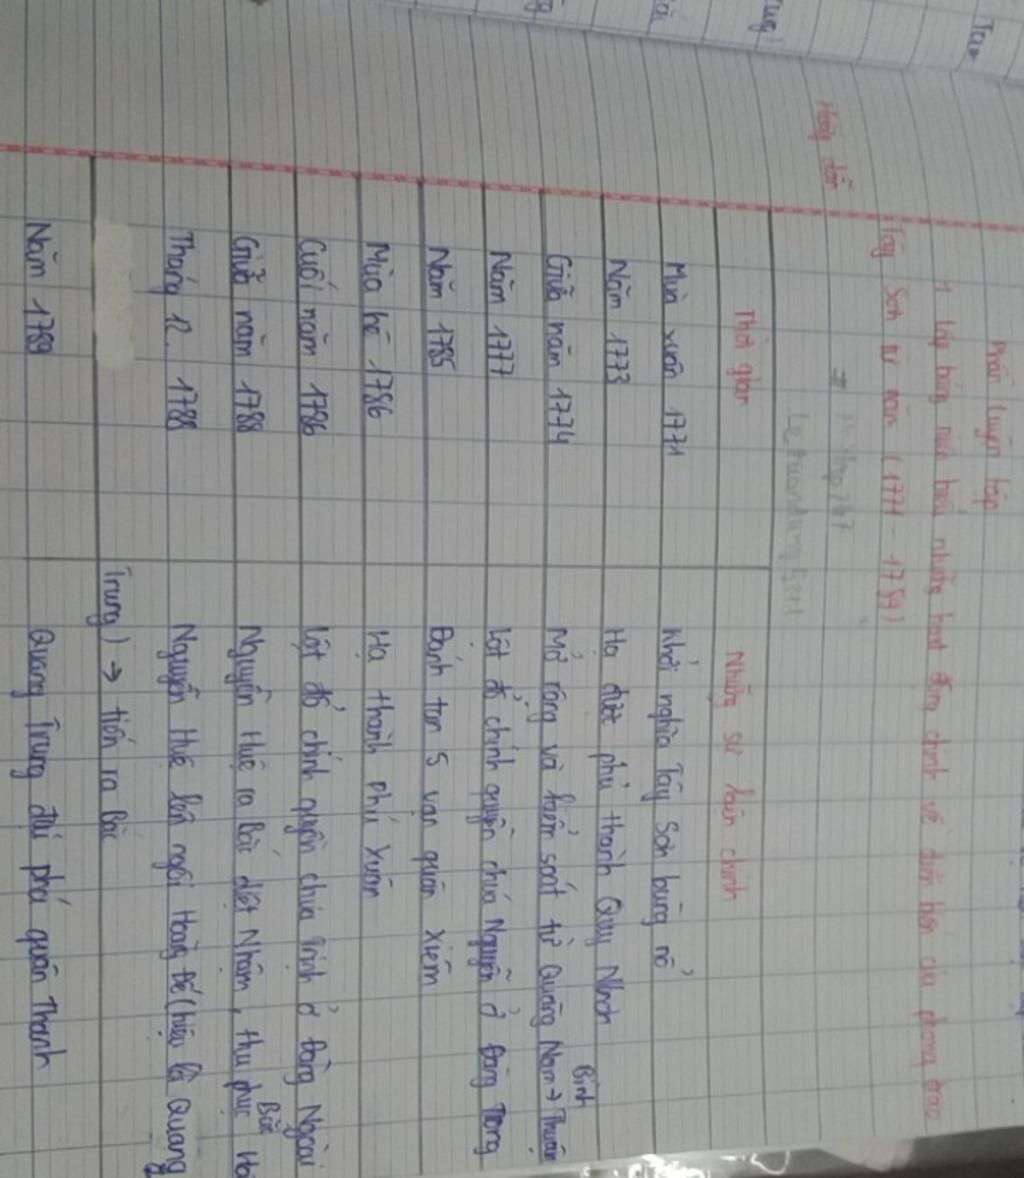 Phần luyện tập
1 Lập bảng niên biểu những hoạt động chính về diễn biến của phong trào
Tây Sơn từ năm (1771 - 1789)
Hướng dẫn
Thời gian Những sự kiện chính
Mùa xuân 1771 Khởi nghĩa Tây Sơn bùng nổ
Năm 1773 Hạ được phủ thành Quy Nhơn
Giữa năm 1774 Mở rộng và kiểm soát từ Quãng Nam → Bình Thuận
Năm 1777 Lật đổ chính quyền chúa Nguyễn ở Đàng Trong
Năm 1785 Đánh tan 5 vạn quân Xiêm
Mùa hè 1786 Hạ thành Phú Xuân
Cuối năm 1786 Lật đổ chính quyền chúa Trịnh ở Đàng Ngoài
Giữa năm 1788 Nguyễn Huệ ra Bắc diệt Nhậm, thu phục Bắc Hà
Tháng 12 1788 Nguyễn Huệ lên ngôi Hoàng Đế (hiệu là Quang
Trung) → tiến ra Bắc
Năm 1789 Quang Trung đại phá quân Thanh